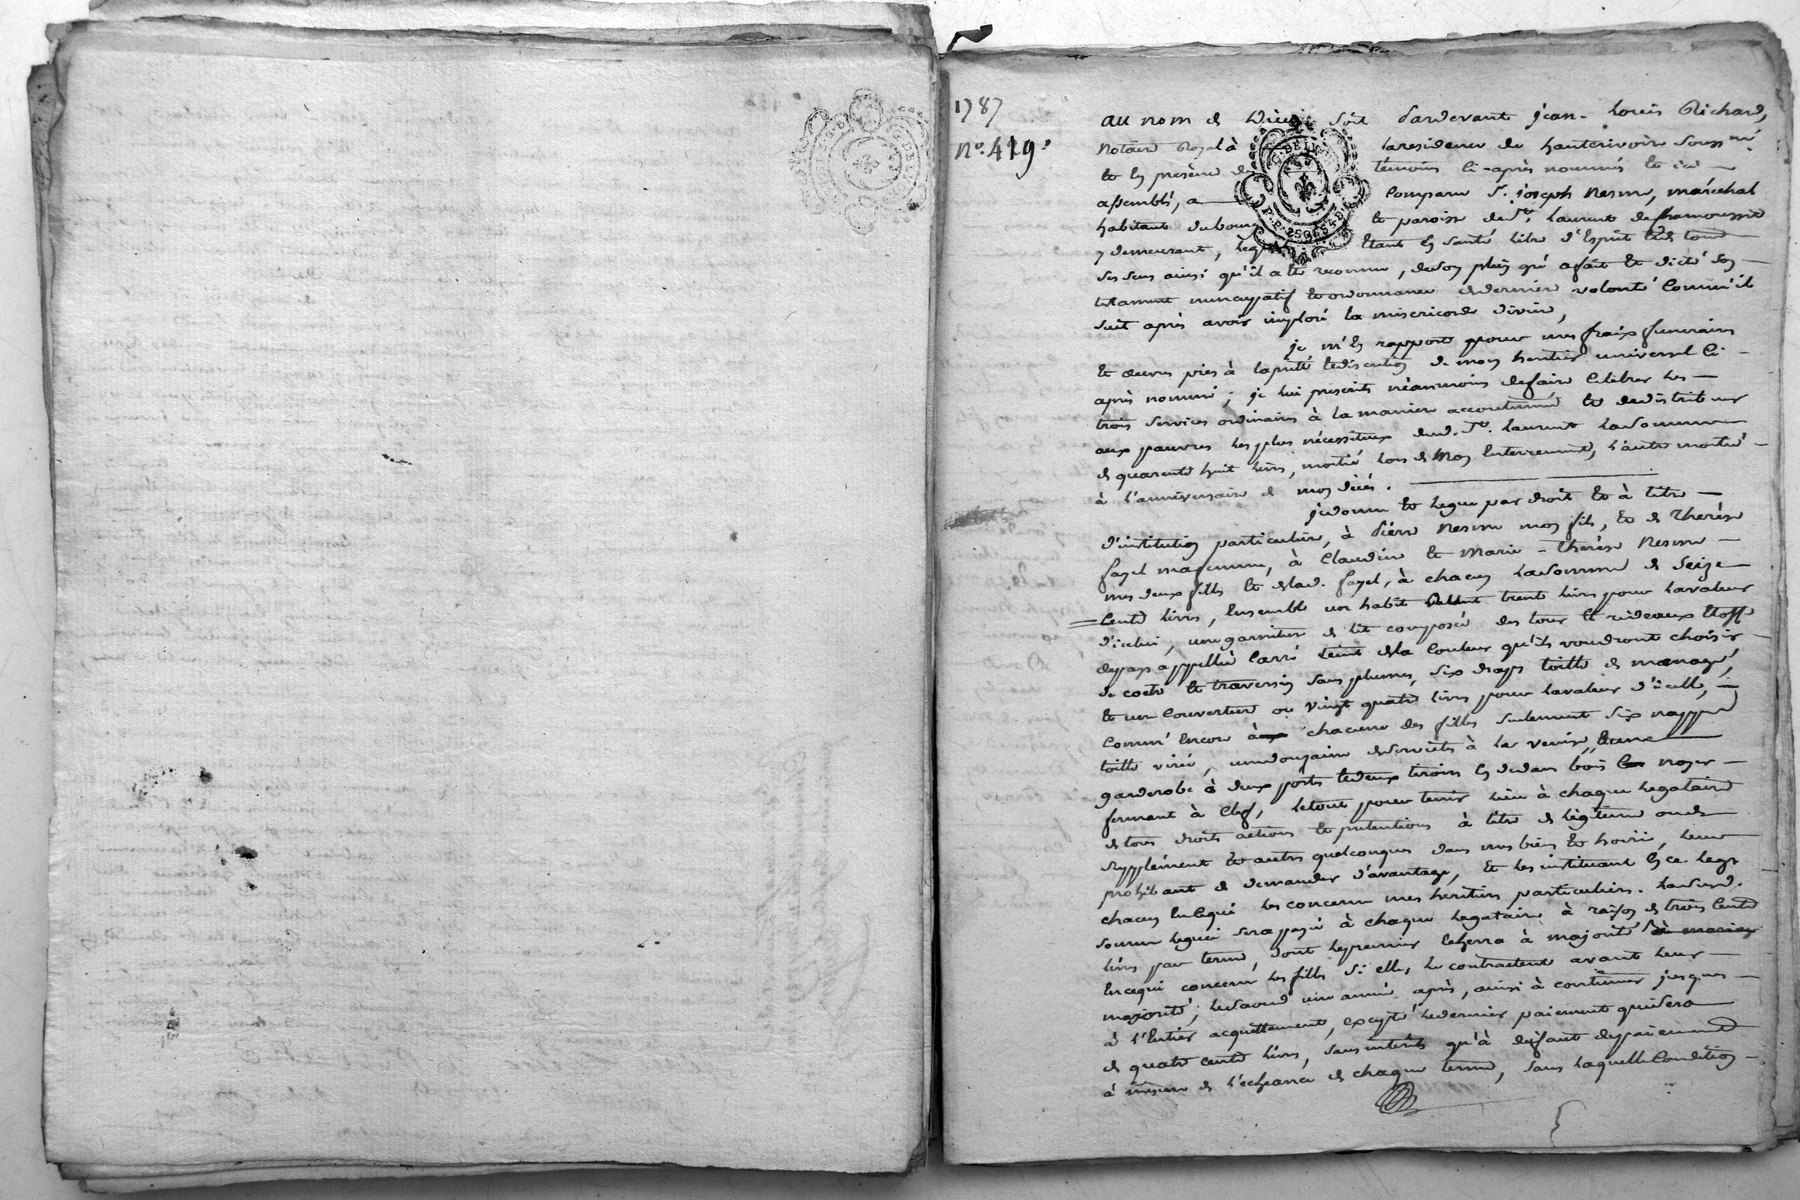 1787
N.º 419.
au nom de Dieu soit pardevant jean-Louis Richard,
Notaire Royal à la residence de hauterivoire soussné
et en présence des témoins ci-après nommés et
assemblés, a comparu Sr. joseph Nesme, maréchal
habitant du bourg et paroisse de St. Laurent de chamousset
y demeurant, lequel étant en santé libre d'Esprit et de tous
ses sens ainsi qu'il a été reconnu, de son plein gré a fait et dicté son
testament nuncupatif et ordonnance de derniere volonté comm'il
suit après avoir imploré la misericorde divine,
je m'en rapporte pour mes fraix funeraires
et œuvres pies à la piété et discretion de mon heritier universel ci-
après nommé; je lui prescrits néanmoins de faire célébrer les
trois services ordinaires à la maniere accoutumée et de distribuer
aux pauvres les plus nécessiteux dud. St. Laurent la somme
de quarente huit livres, moitié lors de mon Enterrement, l'autre moitié
à l'anniversaire de mon décés.
je donne et legue par droit et à titre
d'institution particulière, à Pierre Nesme mon fils, et de Therèse
fayel ma femme, à Claudine et Marie-Thérèse Nesme
mes deux filles et de lad. fayel, à chacun la somme de seize
cents livres, Ensemble un habit trente livres pour la valeur
d'icelui, une garniture de lit composée des tour et rideaux Etoffe
de pays appellée Carré teint de la couleur qu'ils voudront choisir
de coetre et traversin sans plumes, six draps toille de menage,
et une couverture ou vingt quatre livres pour la valeur d'icelle,
comm' Encore à chacune des filles seulement six nappes
toille , une douzaine de serviettes à la venise, et une
garderobe à deux portes et deux tiroirs en dedans bois noyer
fermant à clef, le tout pour tenir lieu à chaque legataire
de tous droits actions et pretentions à titre de légitime ou de
supplément et autres quelconques dans mes biens et hoirie, leur
prohibant de demander d'avantage, et les instituant en ce legs
chacun En ce qui les concerne mes heritiers particuliers. Lad.
somme leguée sera payée à chaque legataire à raison de trois cents
livres par terme, dont le premier Echerra à majorité
En ce qui concerne les filles si elles le contractent avant leur
majorité; le second une année après, ainsi à continuer jusques
à l'Entier acquittement, excepté le dernier paiement qui sera
de quatre cents livres, sans intérêts qu'à deffaut de paiement
à mesure de l'echeance de chaque terme, sans laquelle condition